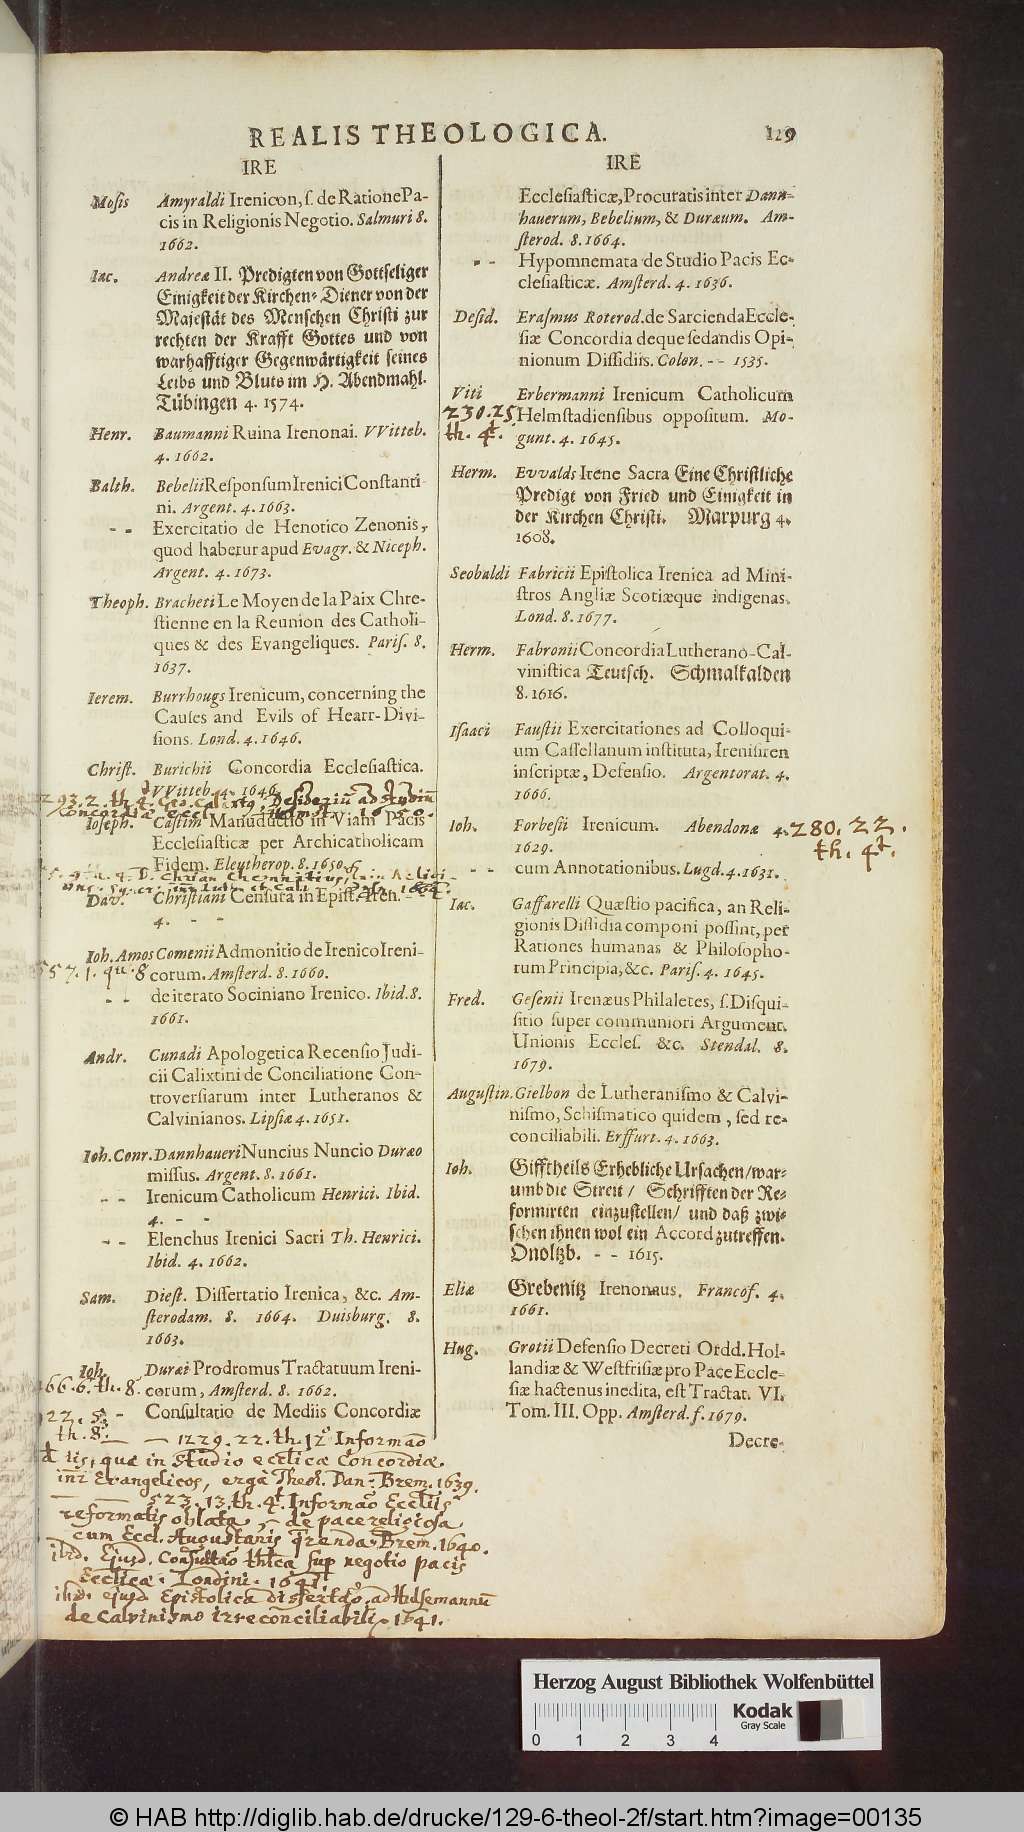 REALIS THEOLOGICA. 129
IRE
Mosis Amyraldi Irenicon, s. de Ratione Pa-
cis in Religionis Negotio. Salmuri 8.
1662.
Iac. Andreæ II. Predigten von Gottseliger
Einigkeit der Kirchen-Diener von der
Majestät des Menschen Christi zur
rechten der Krafft Gottes und von
warhafftiger Gegenwärtigkeit seines
Leibs und Bluts im H. Abendmahl.
Tübingen 4. 1574.
Henr. Baumanni Ruina Irenonai. VVitteb.
4. 1662.
Balth. Bebelii Responsum Irenici Constanti-
ni. Argent. 4. 1663.
- - Exercitatio de Henotico Zenonis,
quod habetur apud Evagr. & Niceph.
Argent. 4. 1673.
Theoph. Bracheti Le Moyen de la Paix Chre-
stienne en la Reunion des Catholi-
ques & des Evangeliques. Paris. 8.
1637.
Ierem. Burrhougs Irenicum, concerning the
Causes and Evils of Heart-Divi-
sions. Lond. 4. 1646.
Christ. Burichii Concordia Ecclesiastica.
VVitteb. 4. 1646.
293.2. th. 4. Geo. Calixtq, Desideriũ ad studiũ
Concordiæ eccl. Helmst. 1650.
Ioseph. Castini Manuductio in Viam Pacis
Ecclesiasticæ per Archicatholicam
Fidem. Eleutherop. 8. 1650.
Dav. Christiani Censura in Epist. Iren. - -
4. - -
Ioh. Amos Comenii Admonitio de Irenico Ireni-
557. 1. qu. 8 corum. Amsterd. 8. 1660.
- - de iterato Sociniano Irenico. Ibid. 8.
1661.
Andr. Cunadi Apologetica Recensio Judi-
cii Calixtini de Conciliatione Con-
troversiarum inter Lutheranos &
Calvinianos. Lipsiæ 4. 1651.
Ioh. Conr. Dannhaueri Nuncius Nuncio Duræo
missus. Argent. 8. 1661.
- - Irenicum Catholicum Henrici. Ibid.
4. - -
- - Elenchus Irenici Sacri Th. Henrici.
Ibid. 4. 1662.
Sam. Diest. Dissertatio Irenica, &c. Am-
sterodam. 8. 1664. Duisburg. 8.
1663.
Ioh. Duræi Prodromus Tractatuum Ireni-
66.6. th. 8. corum, Amsterd. 8. 1662.
22. 5. - Consultatio de Mediis Concordiæ
th. 8. — — 1229. 22. th. 12° Informao
tis, quæ in studio ecclicæ Concordiæ.
inr Evangelicos, ergà Theol. Dan. Brem. 1639.
— 523. 13. th. 4t. Informao Eccliis
reformatis oblata, de pace religiosa
cum Eccl. Augustanis qrenda. Brem. 1640.
ibid. Ejusd. Consultao thlca sup negotio pacis
Ecclicæ. Londini. 1641.
ibid. ejusd Epistolica dissertao, ad Hulsemannũ
de Calvinismo irreconciliabili. 1641.
IRE
Ecclesiasticæ, Procuratis inter Dann-
hauerum, Bebelium, & Duræum. Am-
sterod. 8. 1664.
- - Hypomnemata de Studio Pacis Ec-
clesiasticæ. Amsterd. 4. 1636.
Desid. Erasmus Roterod. de Sarcienda Eccle-
siæ Concordia deque sedandis Opi-
nionum Dissidiis. Colon. - - 1535.
Viti Erbermanni Irenicum Catholicum
230.25. Helmstadiensibus oppositum. Mo-
th. 4t. gunt. 4. 1645.
Herm. Evvalds Irene Sacra Eine Christliche
Predigt von Fried und Einigkeit in
der Kirchen Christi. Marpurg 4.
1608.
Seobaldi Fabricii Epistolica Irenica ad Mini-
stros Angliæ Scotiæque indigenas.
Lond. 8. 1677.
Herm. Fabronii Concordia Lutherano-Cal-
vinistica Teutsch. Schmalkalden
8. 1616.
Isaaci Faustii Exercitationes ad Colloqui-
um Cassellanum instituta, Irenisiren
inscriptæ, Defensio. Argentorat. 4.
1666.
Ioh. Forbesii Irenicum. Abendonæ 4. 280. 22.
1629. th. 4t.
- - cum Annotationibus. Lugd. 4. 1631.
Iac. Gaffarelli Quæstio pacifica, an Reli-
gionis Dissidia componi possint, per
Rationes humanas & Philosopho-
rum Principia, &c. Paris. 4. 1645.
Fred. Gesenii Irenæus Philaletes, s. Disqui-
sitio super communiori Argument.
Unionis Eccles. &c. Stendal. 8.
1679.
Augustin. Gielbon de Lutheranismo & Calvi-
nismo, Schismatico quidem, sed re-
conciliabili. Erffurt. 4. 1663.
Ioh. Gifftheils Erhebliche Ursachen/ war-
umb die Streit / Schrifften der Re-
formirten einzustellen/ und daß zwi-
schen ihnen wol ein Accord zutreffen.
Onoltzb. - - 1615.
Eliæ Grebenitz Irenonaus. Francof. 4.
1661.
Hug. Grotii Defensio Decreti Ordd. Hol-
landiæ & Westfrisiæ pro Pace Eccle-
siæ hactenus inedita, est Tractat. VI.
Tom. III. Opp. Amsterd. f. 1679.
Decre-
Herzog August Bibliothek Wolfenbüttel
Kodak
Gray Scale
0 1 2 3 4
© HAB http://diglib.hab.de/drucke/129-6-theol-2f/start.htm?image=00135